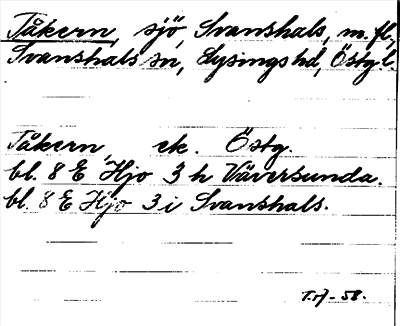 Tåkern, sjö, Svanshals, m. fl.,
Svanshals sn, Lysings hd, Östg.l.
Tåkern, ek. Östg.
bl. 8 E Hjo 3 h Väversunda.
bl. 8 E Hjo 3 i Svanshals.
58.